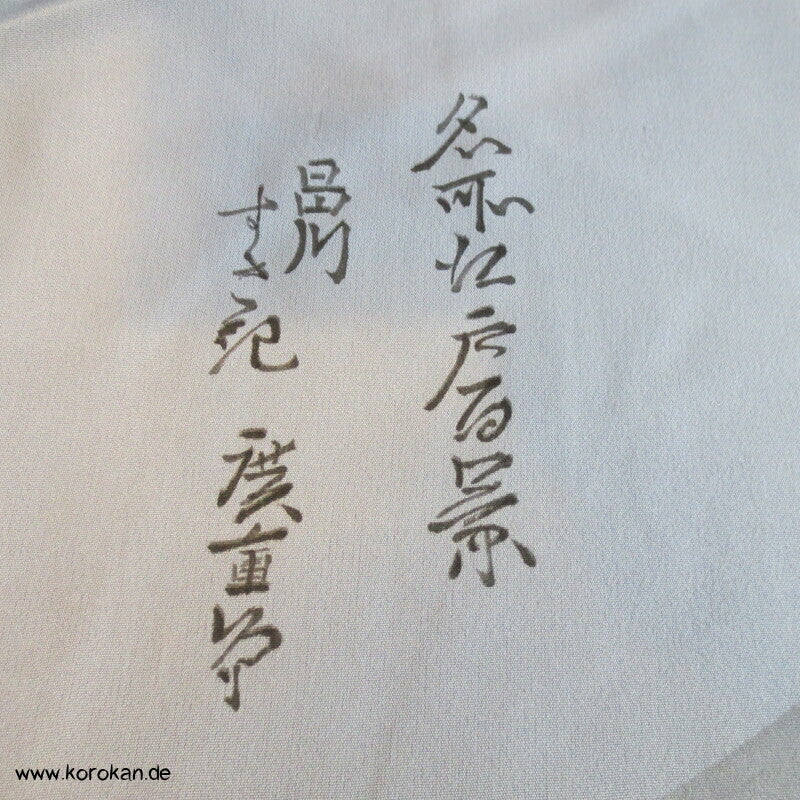 名所江戸百景
品川
すさき 廣重筆
www.korokan.de